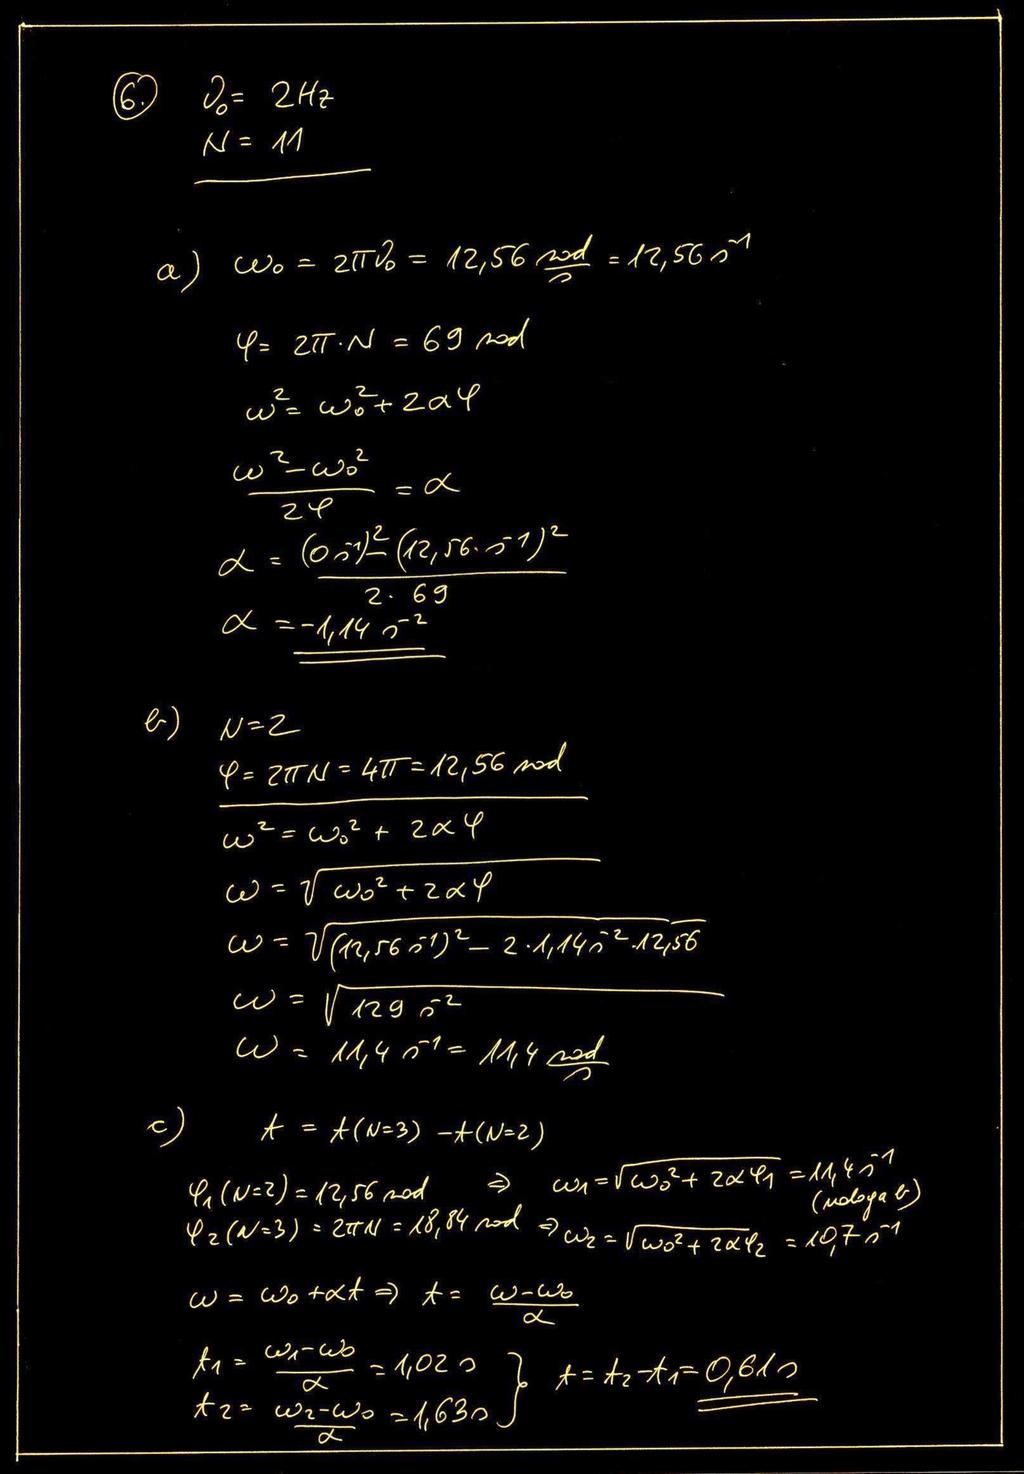 6. ν₀ = 2Hz
N = 11
a) ω₀ = 2πν₀ = 12,56 rad/s = 12,56 s⁻¹
φ = 2π·N = 69 rad
ω² = ω₀² + 2αφ
(ω² - ω₀²)/2φ = α
α = ((0 s⁻¹)² - (12,56·s⁻¹)²)/(2·69)
α = -1,14 s⁻²
b) N=2
φ = 2πN = 4π = 12,56 rad
ω² = ω₀² + 2αφ
ω = √(ω₀² + 2αφ)
ω = √((12,56 s⁻¹)² - 2·1,14 s⁻²·12,56)
ω = √(129 s⁻²)
ω = 11,4 s⁻¹ = 11,4 rad/s
c) t = t(N=3) - t(N=2)
φ₁(N=2) = 12,56 rad ⇒ ω₁ = √(ω₀² + 2αφ₁) = 11,4 s⁻¹
(naloga b)
φ₂(N=3) = 2πN = 18,84 rad ⇒ ω₂ = √(ω₀² + 2αφ₂) = 10,7 s⁻¹
ω = ω₀ + αt ⇒ t = (ω - ω₀)/α
t₁ = (ω₁ - ω₀)/α = 1,02 s
t₂ = (ω₂ - ω₀)/α = 1,63 s } t = t₂ - t₁ = 0,61 s